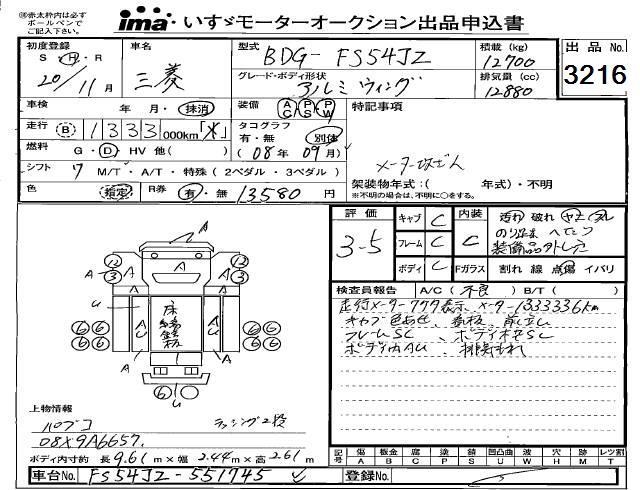 ※赤太枠内は必ず
ボールペンで
ご記入下さい。
ima いすゞモーターオークション出品申込書
初度登録 S・H・R 20/11月
車名 三菱
型式 BDG-FS54JZ
グレード・ボディ形状 アルミウィング
積載(kg) 12700
排気量(cc) 12880
出品No 3216
車検 年 月・抹消
装備 AC PS PW
特記事項
走行 (B) 1333 000km
タコグラフ 有・無 別体
燃料 G・D・HV 他( )
(08年09月)
メーター改ざん
シフト 7 M/T・A/T・特殊(2ペダル・3ペダル)
架装物年式:( 年式)・不明
※不明の場合は、不明に○をする。
色 指定 R券 有・無 13580円
評価 3-5
キャブ C
フレーム C
ボディ C
内装 C
Fガラス
汚れ 破れ ヤニ
装備品
割れ 線 点傷 イバリ
検査員報告 A/C(不良) B/T( )
走行メーター777表示、メーター1333336km
キャブ色あせ、看板、
フレームSC、ボディ SC
ボディ内AU、
12 3 12 3
A A A
U AU AU
床 鉄板
6 6 6 6
6 6 6 6
A A
6
U
上物情報
パブコ
ラッシング2段
08X9A6657.
ボディ内寸約 長9.61m×幅2.44m×高2.61m
記号 傷 A 板金 B 腐 C 塗 P 錆 S 凹凸曲 U 波 W 穴 H 無 M レツ割 T
車台No. FS54JZ-551745
登録No.